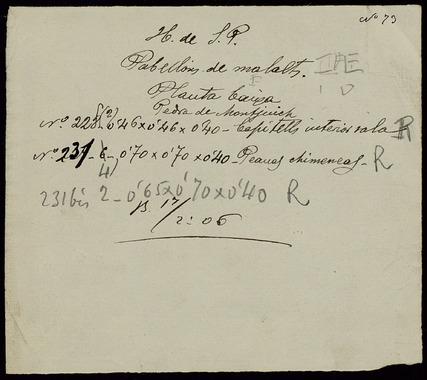 Nº 73
H. de S. P.
Pabellóns de malalts. I A E
I D
Planta baixa
Pedra de Montjuich
Nº 228 (2) 0'46 x 0'46 x 0'40 - Capitells interiors sala R
Nº 231 - 6 - 0'70 x 0'70 x 0'40 - Peanas chimeneas - R
4)
231 bis 2 - 0'65 x 0'70 x 0'40 R
B. 17/
2: 06